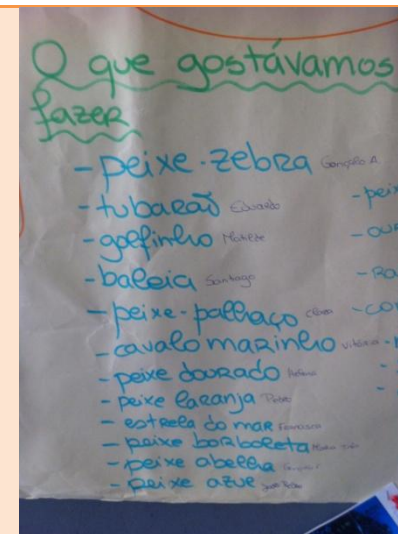 O que gostávamos
fazer
- peixe-zebra Gonçalo A.
- tubarão Eduardo
- golfinho Matilde
- baleia Santiago
- peixe-palhaço Clara
- cavalo marinho Vitória
- peixe dourado
- peixe laranja Pedro
- estrela do mar Francisca
- peixe borboleta
- peixe abelha
- peixe azul